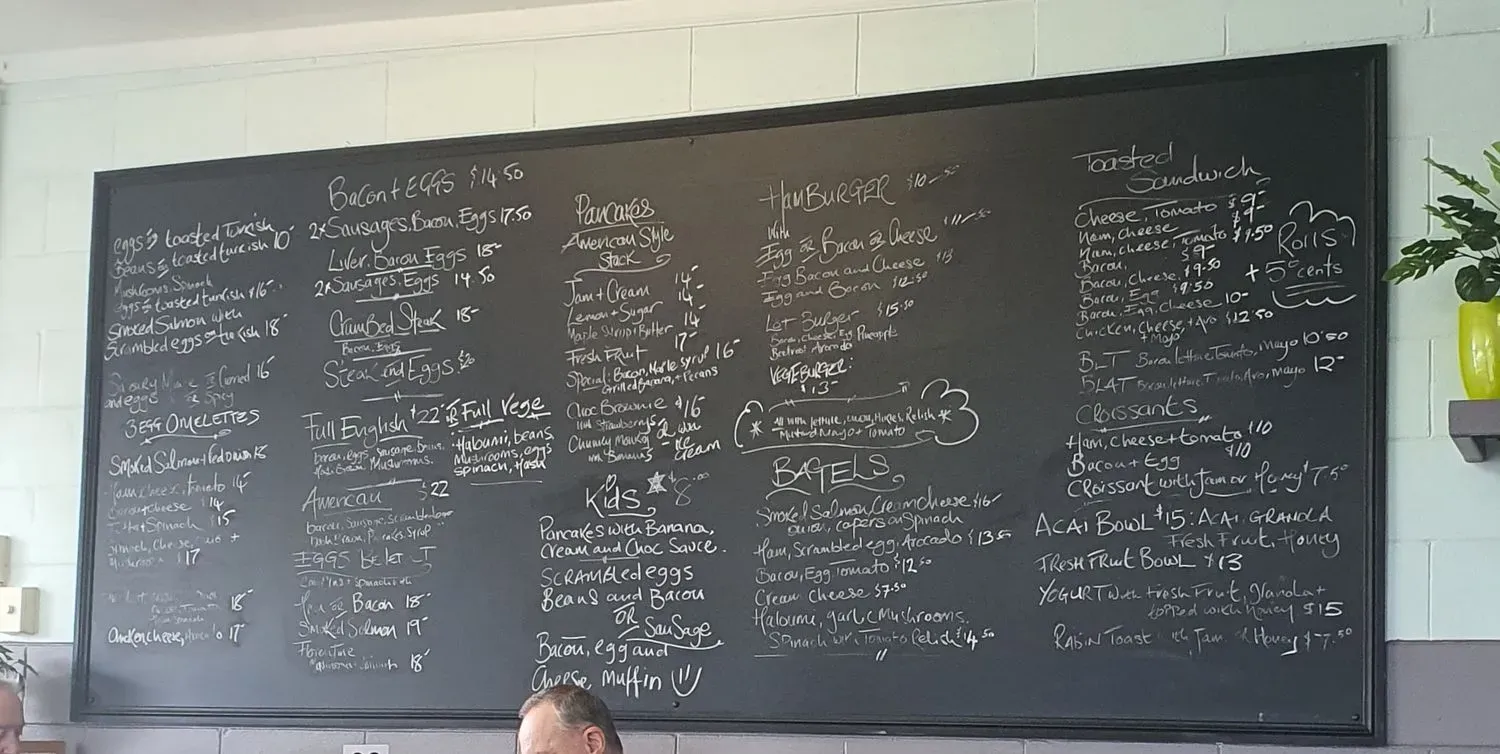 eggs on toasted Turkish
Beans on toasted turkish 10-
Mushrooms, Spinach
eggs on toasted turkish $16-
Smoked Salmon with
Scrambled eggs on turkish 18-
Savoury Mince Curried 16-
and eggs or Spicy
3 EGG OMELETTES
Smoked Salmon + Red onion
Ham cheese, tomato 14-
Bacon + cheese $14
+ Spinach $15
Spinach, Cheese, +
$17
18-
Chicken cheese, 17-
Bacon + EGGS $14.50
2x Sausages, Bacon, Eggs 17.50
Liver, Bacon Eggs 18-
2x Sausages, Eggs 14.50
CrumBed Steak 18-
Bacon, Eggs
Steak and Eggs $20
Full English $22-
bacon, eggs, sausage, beans,
Hash Brown, Mushrooms.
OR Full Vege
Haloumi, beans,
Mushrooms, eggs
spinach, + Hash
American $22
bacon, Sausage, Scrambled eggs
Hash Brown, Pancakes, Syrup
EGGS
spinach with
Ham OR Bacon 18-
Smoked Salmon 19-
Florentine
Mushroom + Spinach 18-
Pancakes
American Style
Stack
Jam + Cream 14-
Lemon + Sugar 14-
Maple Syrup + Butter 14
Fresh Fruit 17-
Special: Bacon, Maple Syrup 16-
Grilled Banana, + Pecans
Choc Brownie $16
with Strawberrys
Chunky Monkey
with Bananas
ice
cream
Kids $8.00
Pancakes with Banana,
Cream and Choc Sauce.
Scrambled eggs
Beans and Bacon
OR Sausage
Bacon, egg and
Cheese Muffin
HamBURGER $10-50
With
Egg OR Bacon OR Cheese $11-50
Egg Bacon and Cheese $13
Egg and Bacon $12.50
Lot Burger $15.50
Bacon, Cheese, Egg Pineapple
Beetroot Avocado
VEGEBURGER:
$13-
* All with lettuce, onion, Relish *
Mustard Mayo + Tomato
BAGELS
Smoked Salmon, Cream Cheese $16-
onion, capers on Spinach
Ham, Scrambled egg, Avocado $13.50
Bacon, Egg, Tomato $12.50
Cream Cheese $7.50
Haloumi, garlic Mushrooms.
Spinach with Tomato Relish $14.50
Toasted
Sandwich
Cheese, Tomato $9-
Ham, cheese $9-
Ham, cheese, Tomato $9.50
Bacon, $9-
Bacon, Cheese, $9.50
Bacon, Egg $9.50
Bacon, Egg, Cheese 10-
Chicken, Cheese, + Avo $12.50
+ Mayo
Rolls
+ 50 cents
BLT Bacon lettuce Tomato, Mayo 10.50
BLAT Bacon, lettuce, Tomato, Avo, Mayo 12-
Croissants
Ham, cheese + tomato $10
Bacon + Egg $10
Croissant with Jam or Honey $7.50
ACAI BOWL $15: ACAI, GRANOLA
Fresh Fruit, Honey
FRESH FRUIT BOWL $13
YOGURT with Fresh Fruit, granola +
topped with honey $15
RAISIN Toast with Jam or Honey $7.50